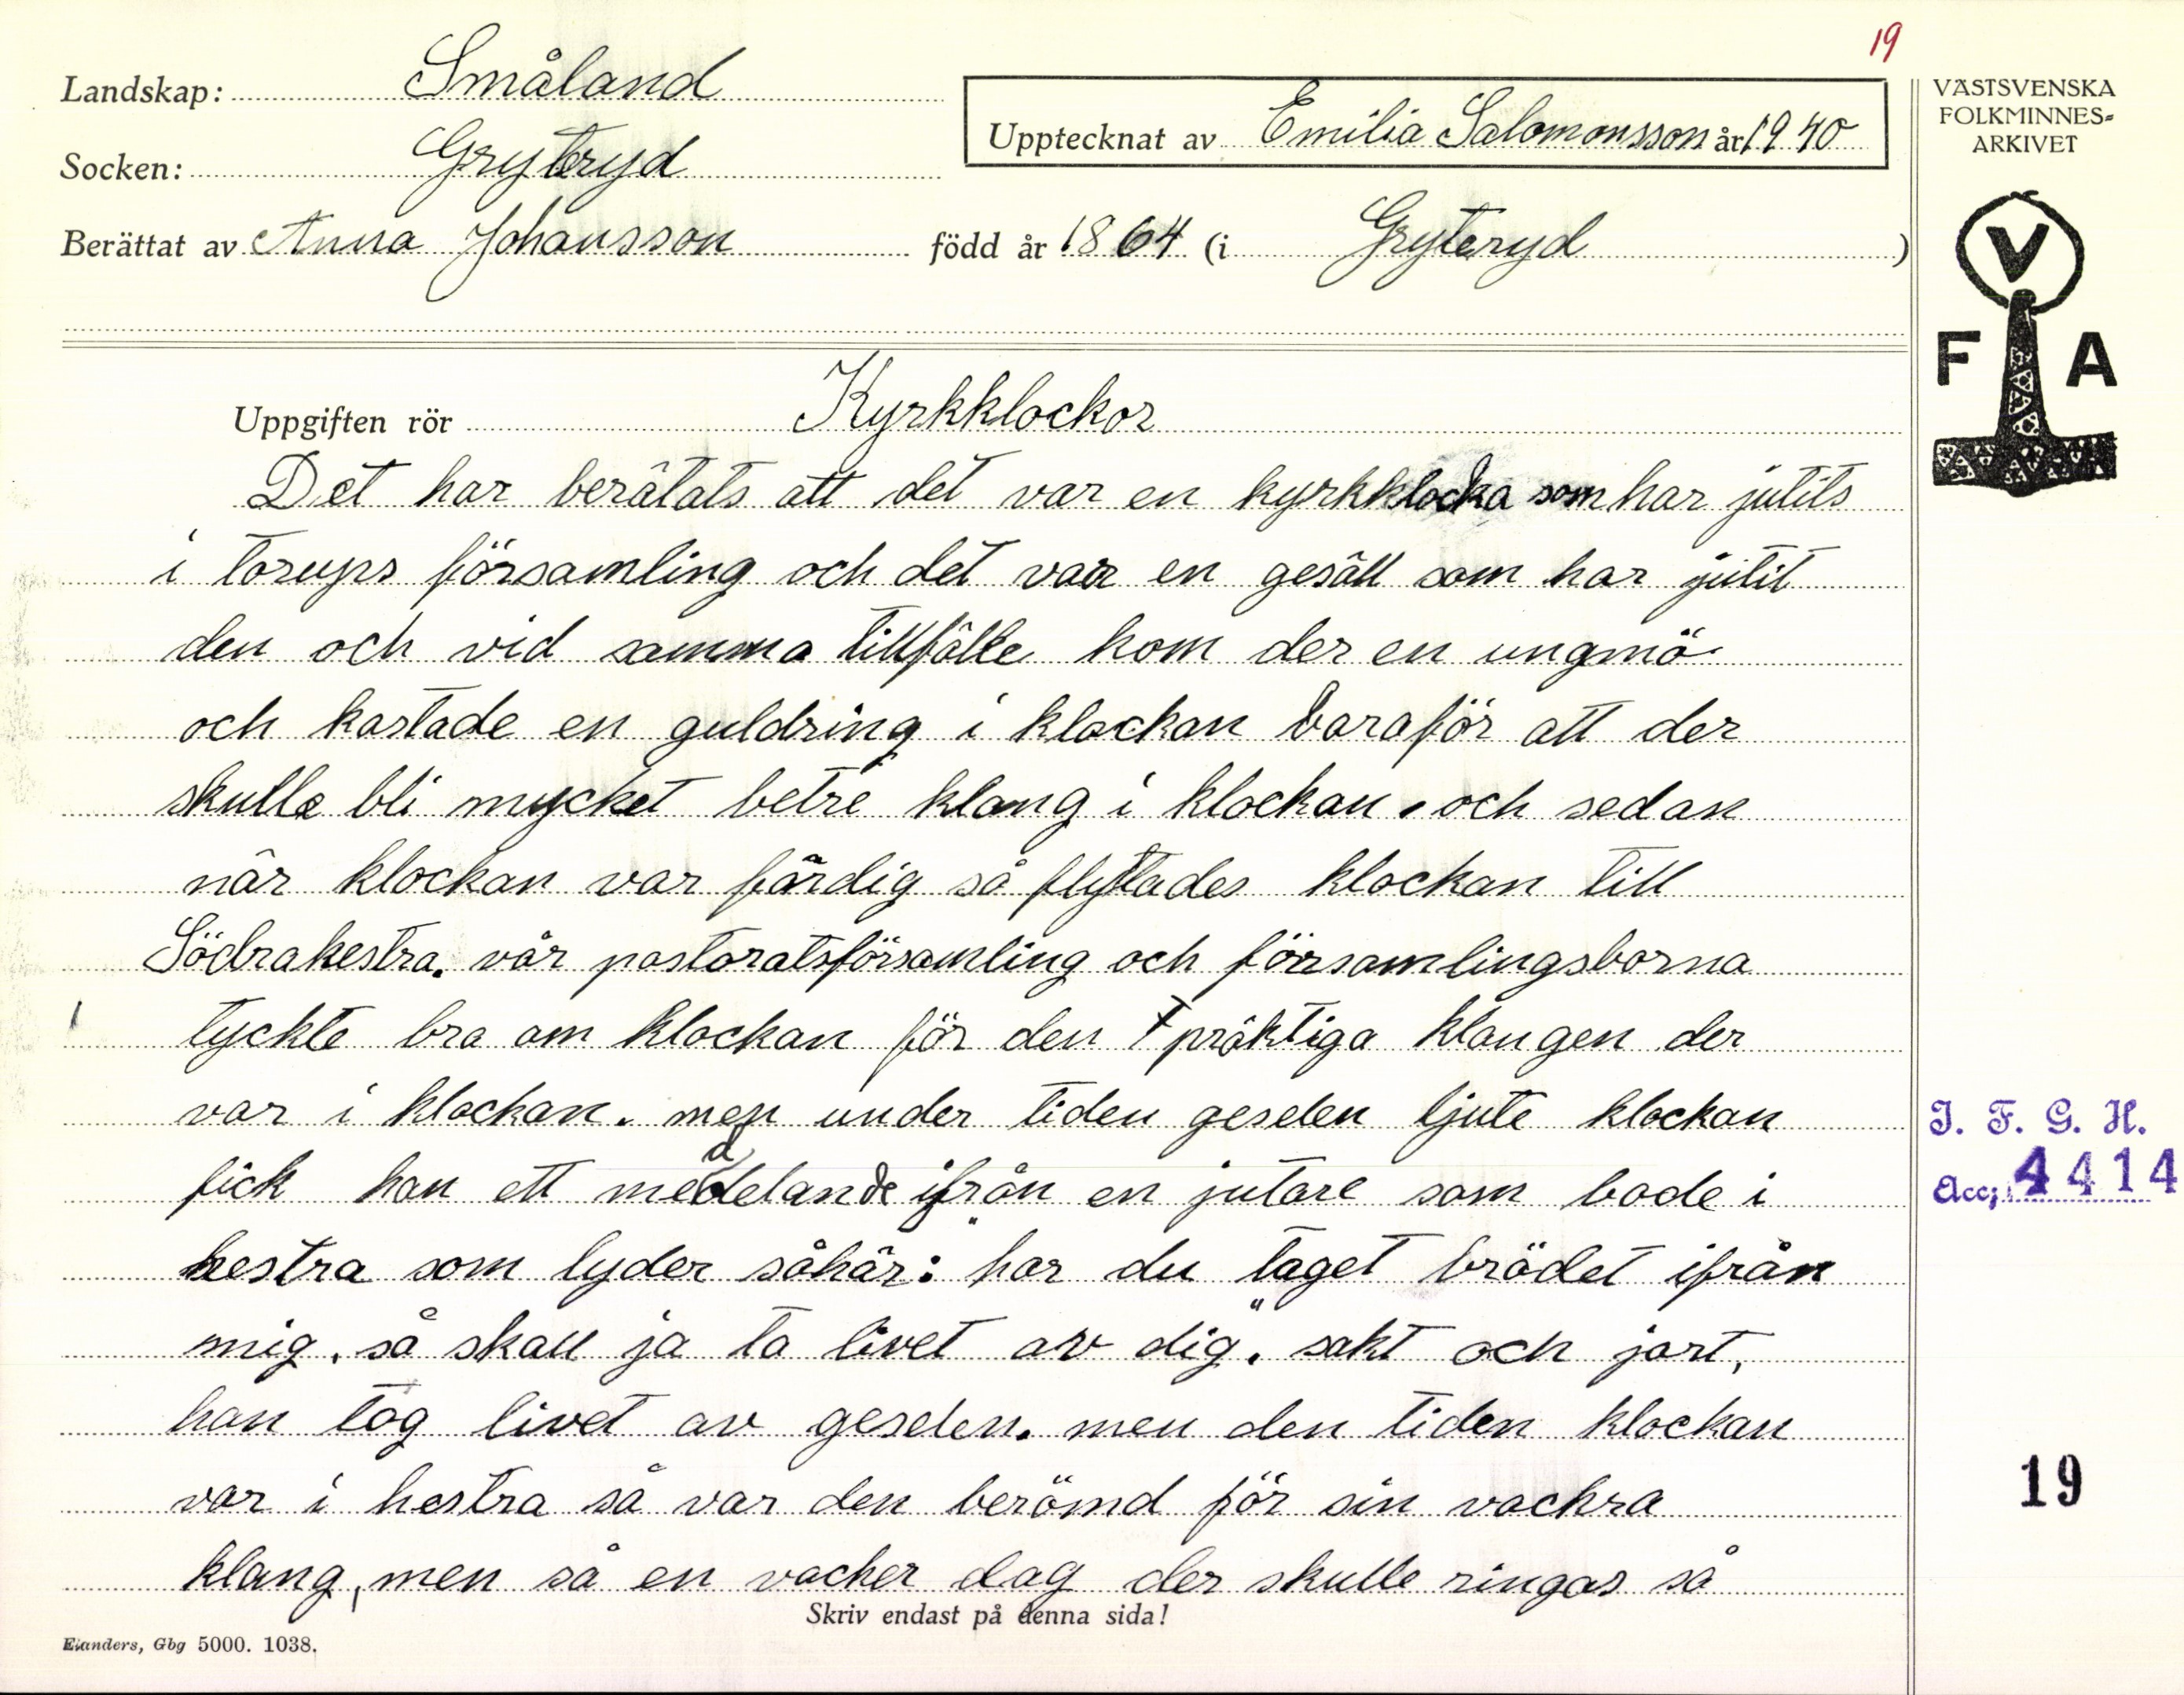 19
Landskap: Småland
Upptecknat av Emilia Salomonsson år 1940
VÄSTSVENSKA
FOLKMINNES=
ARKIVET
Socken: Gryteryd
Berättat av Anna Johansson född år 1864 (i Gryteryd )
V
F A
Uppgiften rör Kyrkklockor
Det har berätats att det var en kyrkklocka som har jutits
i torups församling och det var en gesäll som har jutit
den och vid samma tillfälle kom der en ungmö
och kastade en guldring i klockan baraför att der
skulle bli mycket betre klang i klockan. och sedan
när klockan var färdig så flyttades klockan till
Södrahestra. vår pastoratsförsamling och församlingsborna
tyckte bra om klockan för den präktiga klangen der
var i klockan. men under tiden geselen ljute klockan
fick han ett meddelande ifrån en jutare som bode i
hestra som lyder såhär: "har du taget brödet ifrån
mig, så skall ja ta livet av dig". sakt och jort,
han tog livet av geselen. men den tiden klockan
var i hestra så var den berömd för sin vackra
klang, men så en vacker dag der skulle ringas så
J. F. G. H.
Acc; 4414
19
Skriv endast på denna sida!
Elanders, Gbg 5000. 1038.